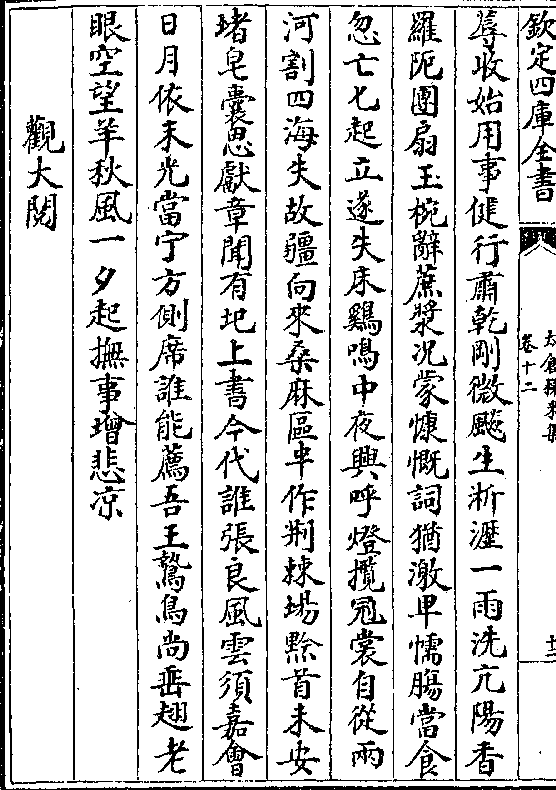 欽定四庫全書
太倉稊米集
卷十二
十二
蓐收始用事健行肅乾剛微飈生淅瀝一雨洗亢陽香
羅阨團扇玉椀辭蔗漿况蒙慷慨詞猶激卑懦腸當食
忽亡匕起立遂失床鷄鳴中夜興呼燈攬冠裳自從兩
河割四海失故疆向來桑麻區半作荆棘場黔首未安
堵皂囊思獻章聞有圯上書今代誰張良風雲須嘉會
日月依末光當宁方側席誰能薦吾王鷙鳥尚垂翅老
眼空望羊秋風一夕起撫事增悲凉
觀大閱